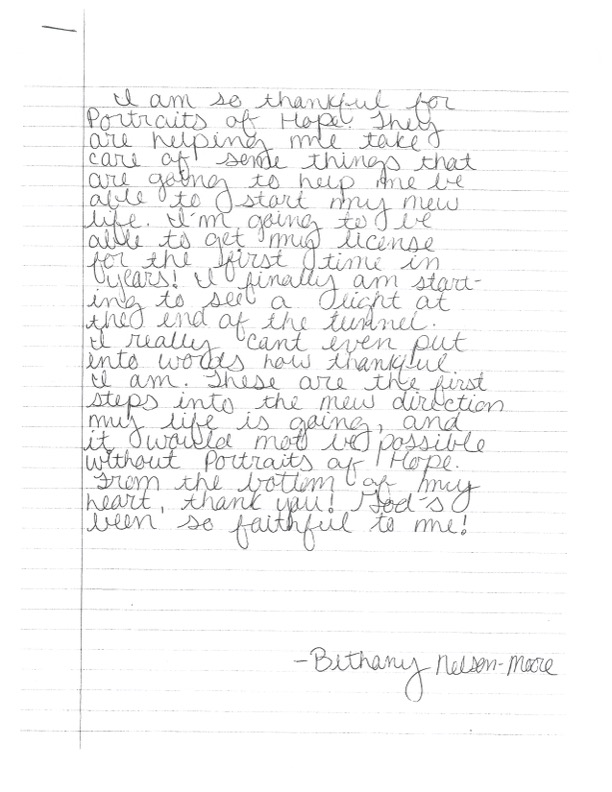 I am so thankful for
Portraits of Hope. They
are helping me take
care of some things that
are going to help me be
able to start my new
life. I'm going to be
able to get my license
for the first time in
years! I finally am start-
ing to see a light at
the end of the tunnel.
I really cant even put
into words how thankful
I am. These are the first
steps into the new direction
my life is going, and
it would not be possible
without Portraits of Hope.
From the bottom of my
heart, thank you! God's
been so faithful to me!
-Bethany Nelson-Moore